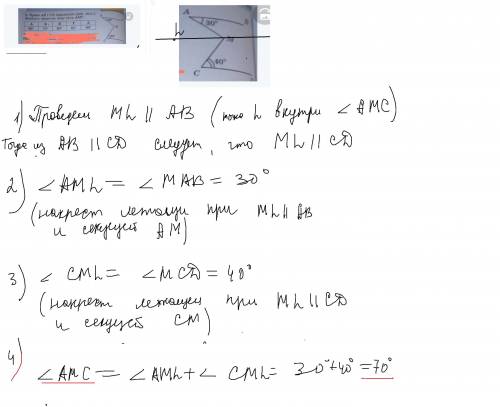 A
30°
M
L
40°
C
1) Проведем ML || AB (точка L внутри ∠ AMC)
Тогда из AB || CD следует, что ML || CD
2) ∠ AML = ∠ MAB = 30°
(накрест лежащи при ML || AB
и секущей AM)
3) ∠ CML = ∠ MCD = 40°
(накрест лежащи при ML || CD
и секущей CM)
4) ∠ AMC = ∠ AML + ∠ CML = 30° + 40° = 70°